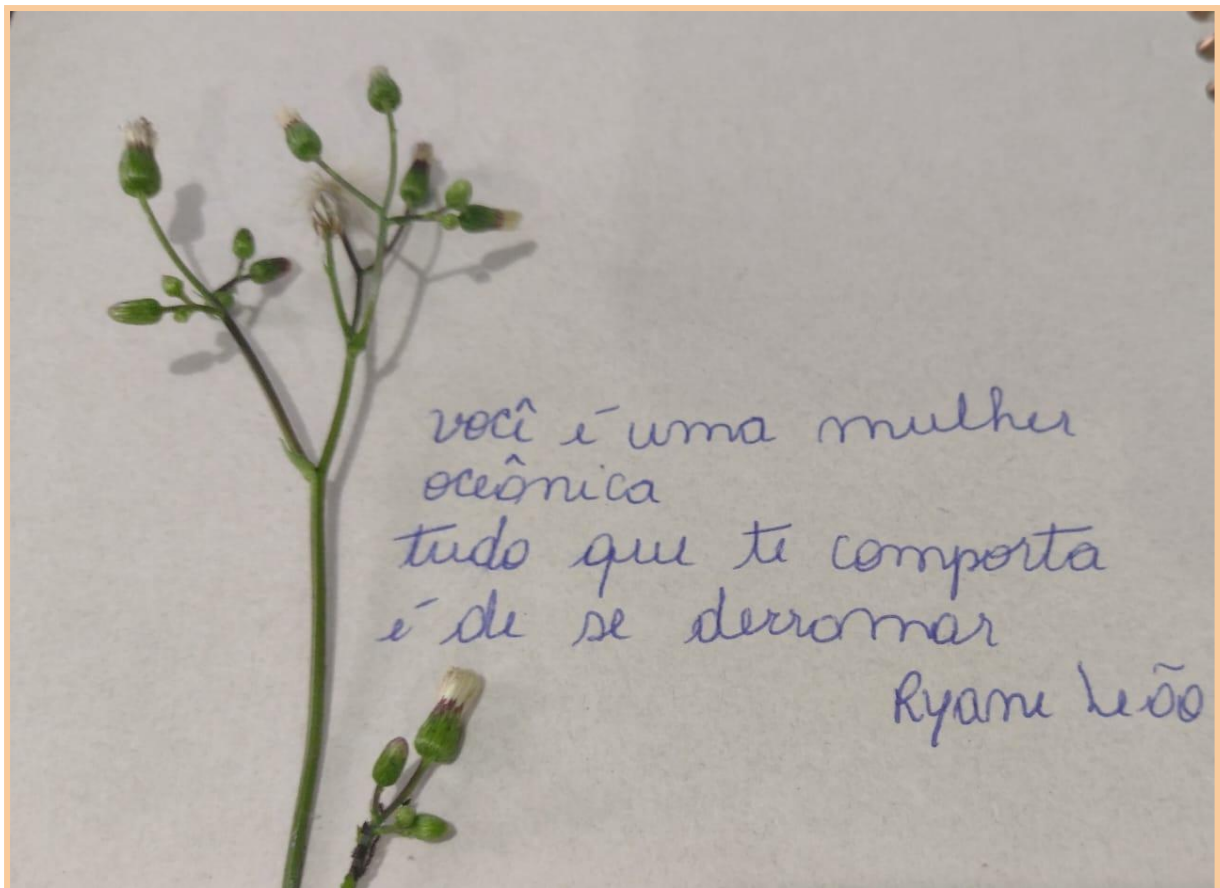 você é uma mulher
oceânica
tudo que te comporta
é de se derramar
Ryane Leão